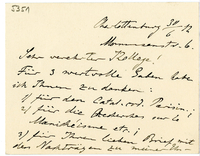 5351
Charlottenburg 30/6 12
Mommsenstr. 6.
Sehr verehrter Kollege!
Für 3 wertvolle Gaben habe
ich Ihnen zu danken:
1) für den Catal. cod. Parisin.;
2) für die Recherches sur le
Manichéisme etc.;
3) für Ihren lieben Brief mit
den Nachträgen zu meiner